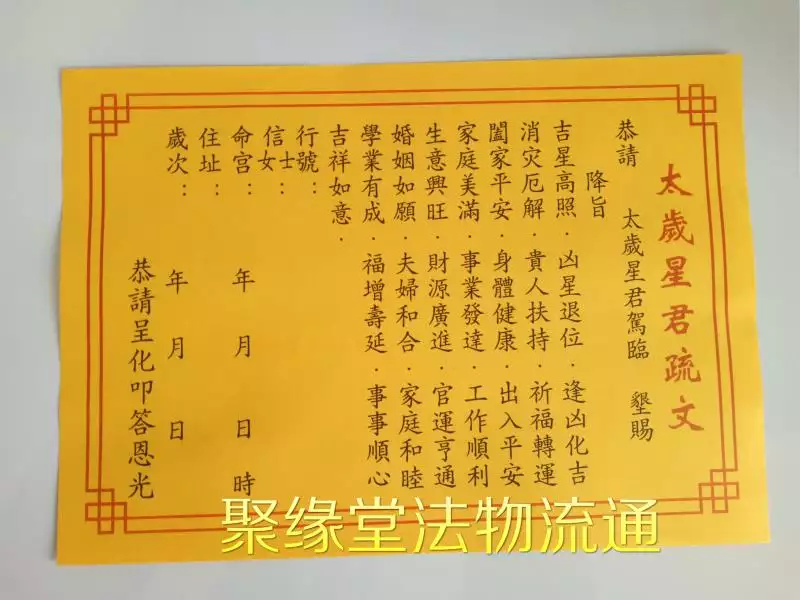 太歲星君疏文
恭請 太歲星君駕臨 懇賜
降旨
吉星高照．凶星退位．逢凶化吉
消灾厄解．貴人扶持．祈福轉運
闔家平安．身體健康．出入平安
家庭美滿．事業發達．工作順利
生意興旺．財源廣進．官運亨通
婚姻如願．夫婦和合．家庭和睦
學業有成．福增壽延．事事順心
吉祥如意．
行號：
信士女：
命宮： 年 月 日 時
住址：
歲次： 年 月 日
恭請呈化叩答恩光
聚缘堂法物流通